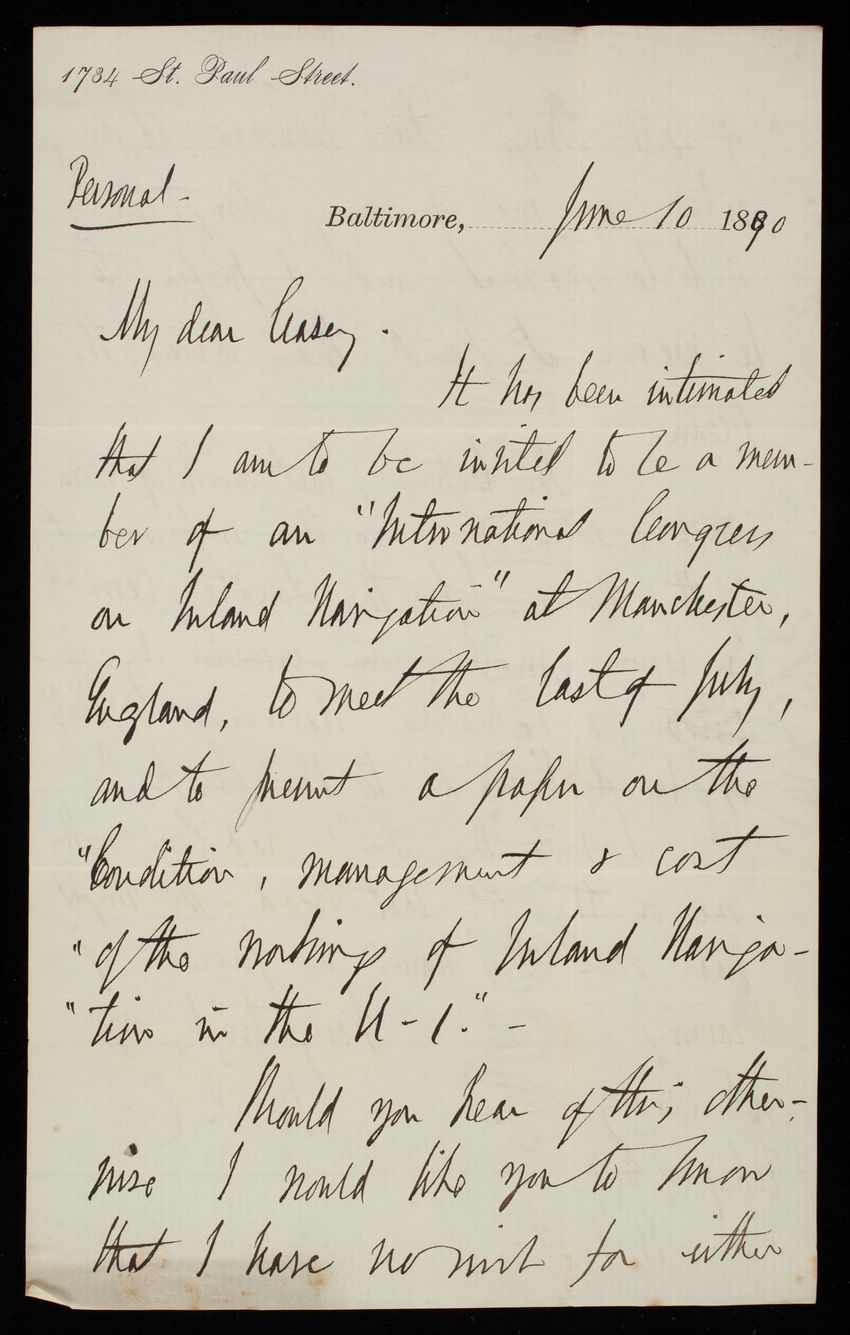 1734 St. Paul Street.
Personal -
Baltimore, June 10 1890
My dear Casey.
It has been intimated
that I am to be invited to be a mem-
ber of an "International Congress
on Inland Navigation" at Manchester,
England, to meet the last of July,
and to present a paper on the
"Condition, management & cost
"of the workings of Inland Naviga-
"tion in the U-S." -
Should you hear of this other-
wise I would like you to know
that I have no wish for either